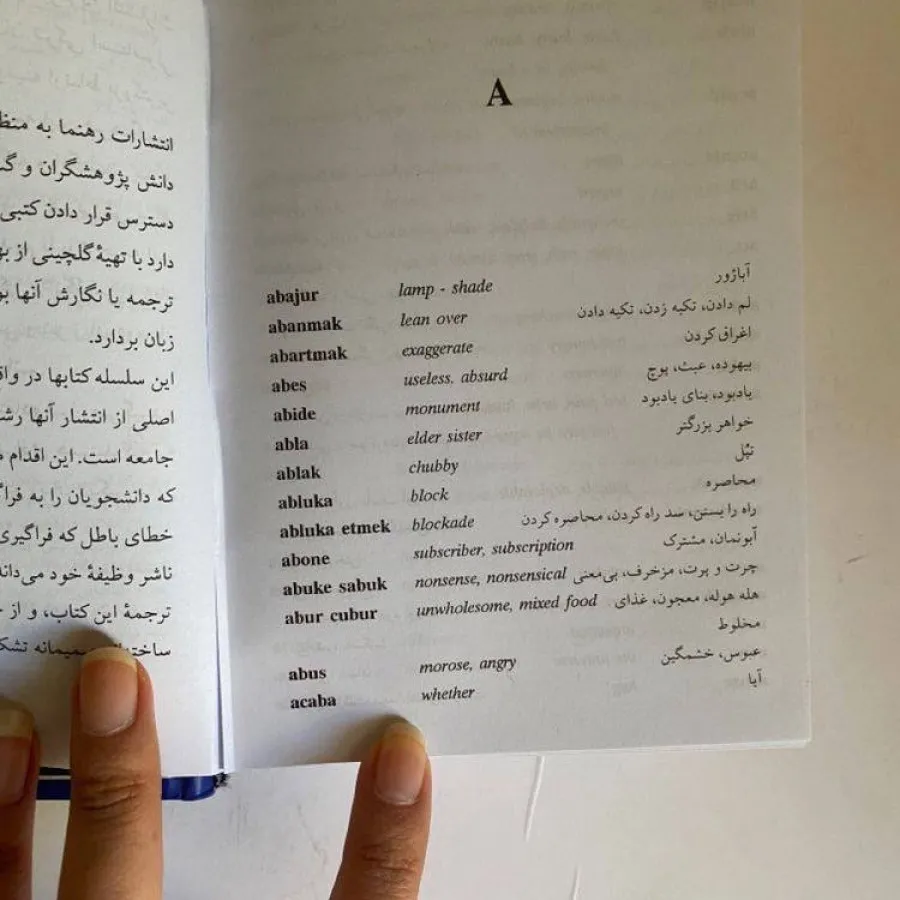 انتشارات رهنما به
دانش پژوهشگران و
دسترس قرار دادن کتبی
دارد با تهیهٔ گلچینی از
ترجمه یا نگارش آنها
زبان بردارد.
این سلسله کتابها در
اصلی از انتشار آنها
جامعه است. این اقدام
که دانشجویان را به
خطای باطل که فراگیری
ناشر وظیفهٔ خود
ترجمهٔ این کتاب، و از
صمیمانه
A
abajur lamp - shade آباژور
abanmak lean over لم دادن، تکیه زدن، تکیه دادن
abartmak exaggerate اغراق کردن
abes useless, absurd بیهوده، عبث، پوچ
abide monument یادبود، بنای یادبود
abla elder sister خواهر بزرگتر
ablak chubby تپُل
abluka block محاصره
abluka etmek blockade راه را بستن، سد راه کردن، محاصره کردن
abone subscriber, subscription آبونمان، مشترک
abuke sabuk nonsense, nonsensical چرت و پرت، مزخرف، بی‌معنی
abur cubur unwholesome, mixed food هله هوله، معجون، غذای
مخلوط
abus morose, angry عبوس، خشمگین
acaba whether آیا